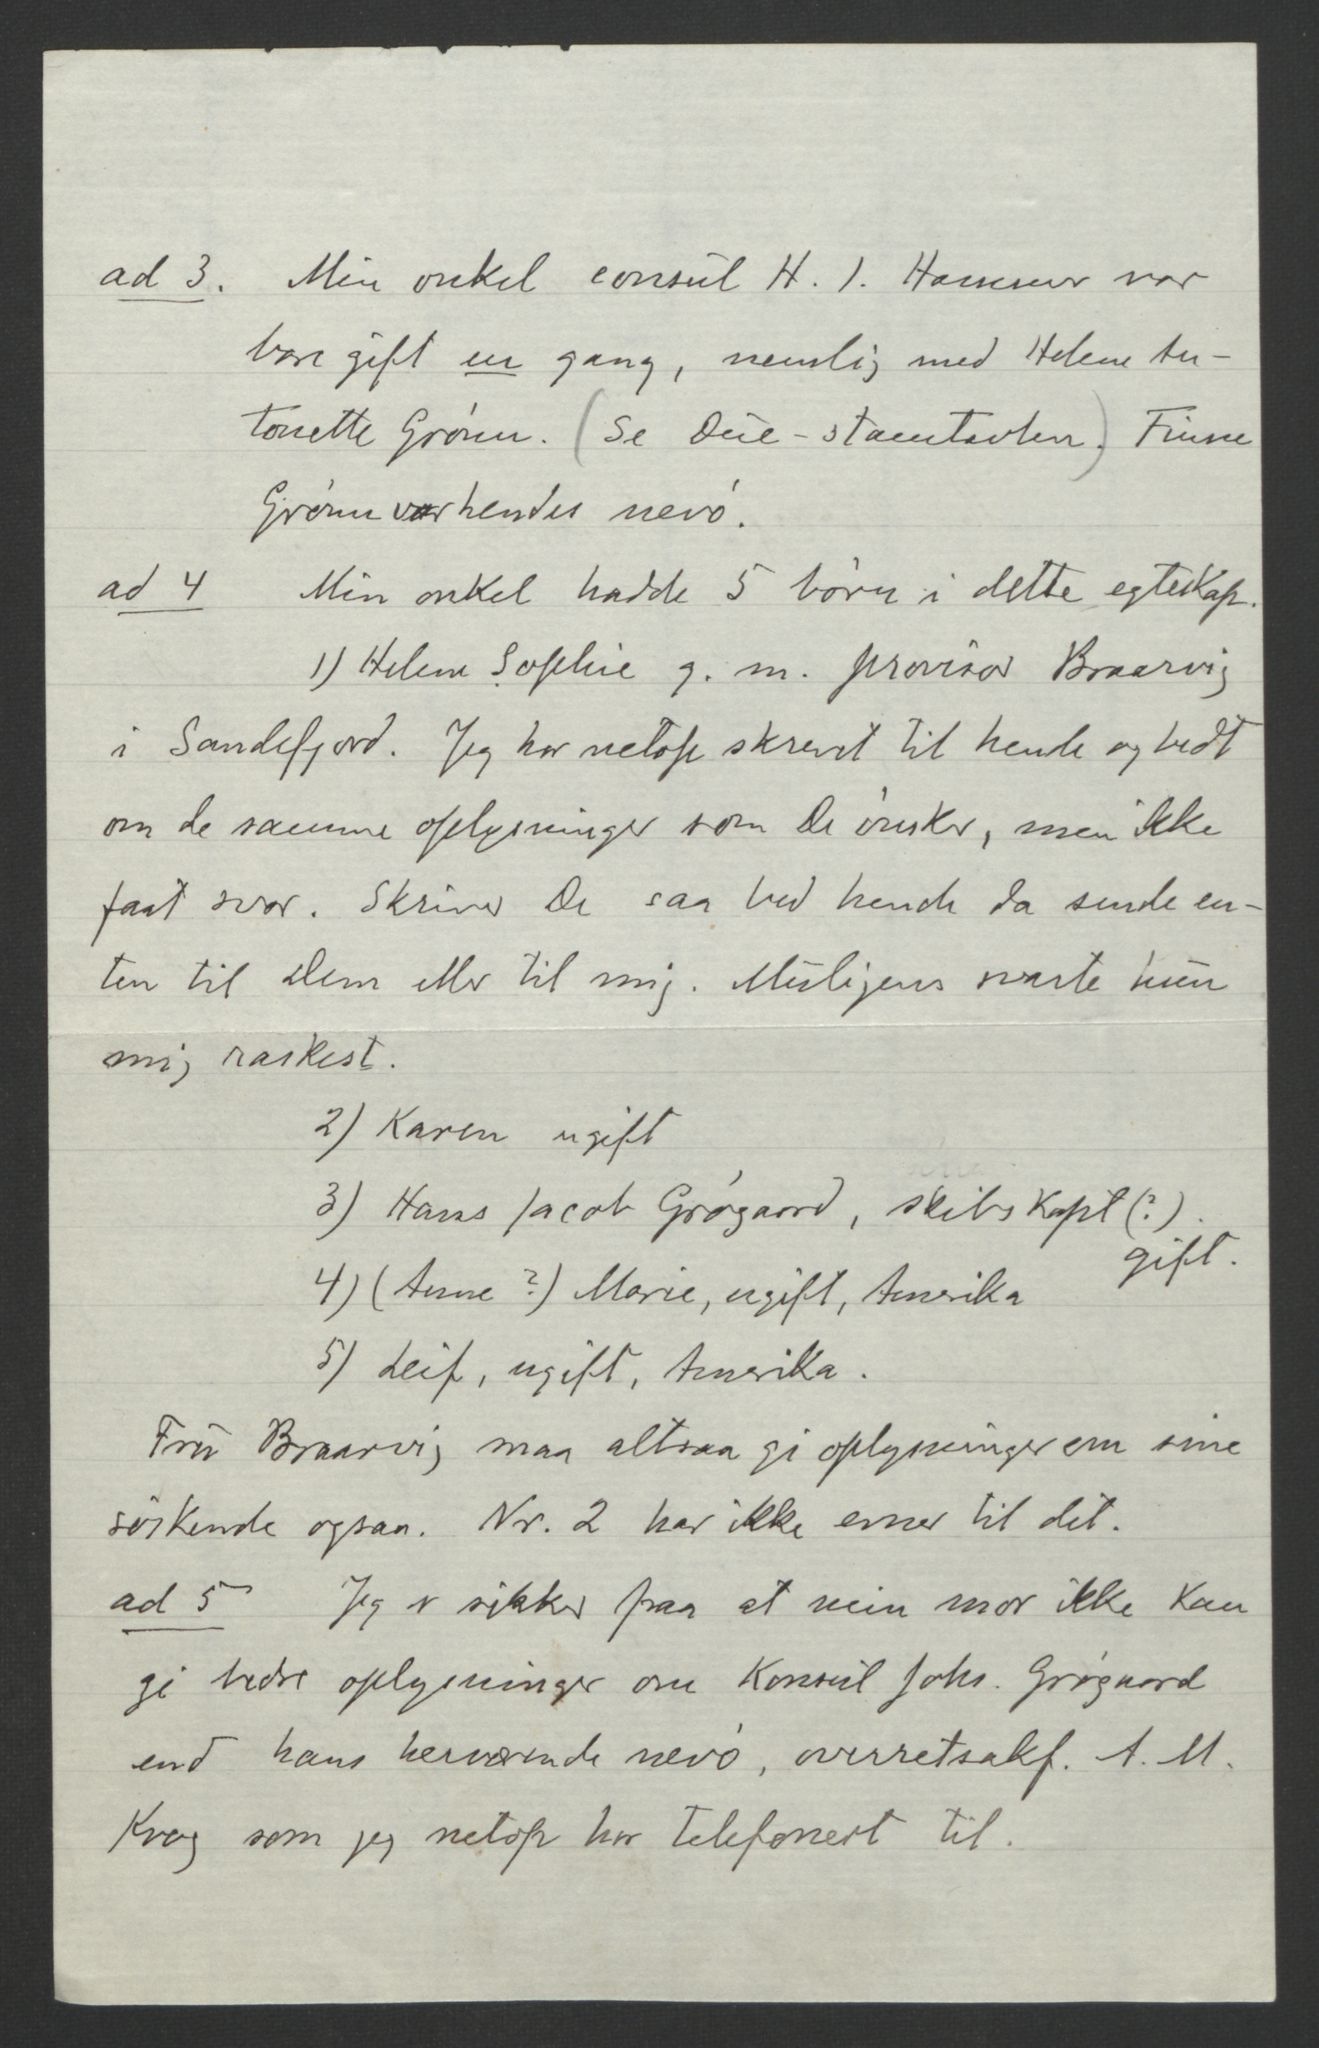 ad 3. Min onkel consul H. J. Hammer var
bare gift en gang, nemlig med Helene An-
tonette Grønn. (Se Due-stamtavlen.) Finne
Grønn var hendes nevø.
ad 4 Min onkel hadde 5 børn i dette egteskap.
1) Helene Sophie g. m. provisor Braarvig
i Sandefjord. Jeg har netop skrevet til hende og bedt
om de samme oplysninger som De ønsker, men ikke
faat svar. Skriver De saa bed hende da sende en-
ten til Dem eller til mig. Muligens svarte hun
mig raskest.
2) Karen ugift
3) Hans Jacob Grøgaard, skibskapt (?).
gift.
4) (Anne?) Marie, ugift, Amerika
5) Leif, ugift, Amerika.
Fru Braarvig maa altsaa gi oplysninger om sine
søskende ogsaa. Nr. 2 har ikke evner til det.
ad 5 Jeg er sikker paa at min mor ikke kan
gi bedre oplysninger om Konsul Johs. Grøgaard
end hans herværende nevø, overretsakf. A. M.
Krag som jeg netop har telefonert til.